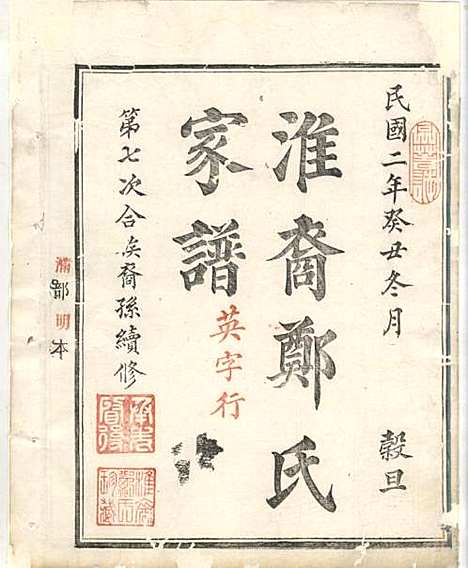 民國二年癸丑冬月 穀旦
淮裔鄭氏
家譜
英字行
第七次合矣裔孫續修
郡
明
本